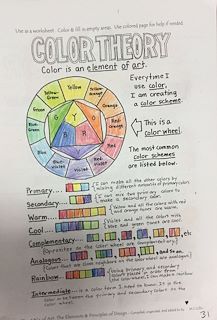 Use as a worksheet. Color & fill in empty areas. Use colored page for help if needed.
COLOR THEORY
Color is an element of art.
Everytime I
use color,
I am creating
a color scheme.
This is a
color wheel.
The most common
color schemes
are listed below.
Yellow
Yellow-
Orange
Orange
Red-
Orange
Red
Red-
violet
Violet
Blue-
violet
Blue
Blue-
Green
Green
Yellow-
Green
Y
O
R
V
B
G
Primary....
I can make all the other colors by
mixing different amounts of primary colors.
Secondary....
I can mix two primary colors to
make a Secondary color.
Warm....
Yellow and all the colors with red
and orange tones are warm.
Cool....
Violet and all the colors with
blue and green tones are cool.
Complementary....
etc.
(Opposites on the color wheel are complementary.)
Analogous
And so on...
(Colors that are close neighbors on the color wheel are analogous.)
Rainbow
Using primary and secondary
colors
color wheel
Intermediate
is a color term I need to know. It is the
color in between the primary and secondary Colors on the
Color wheel.
The Elements & Principles of Design
31